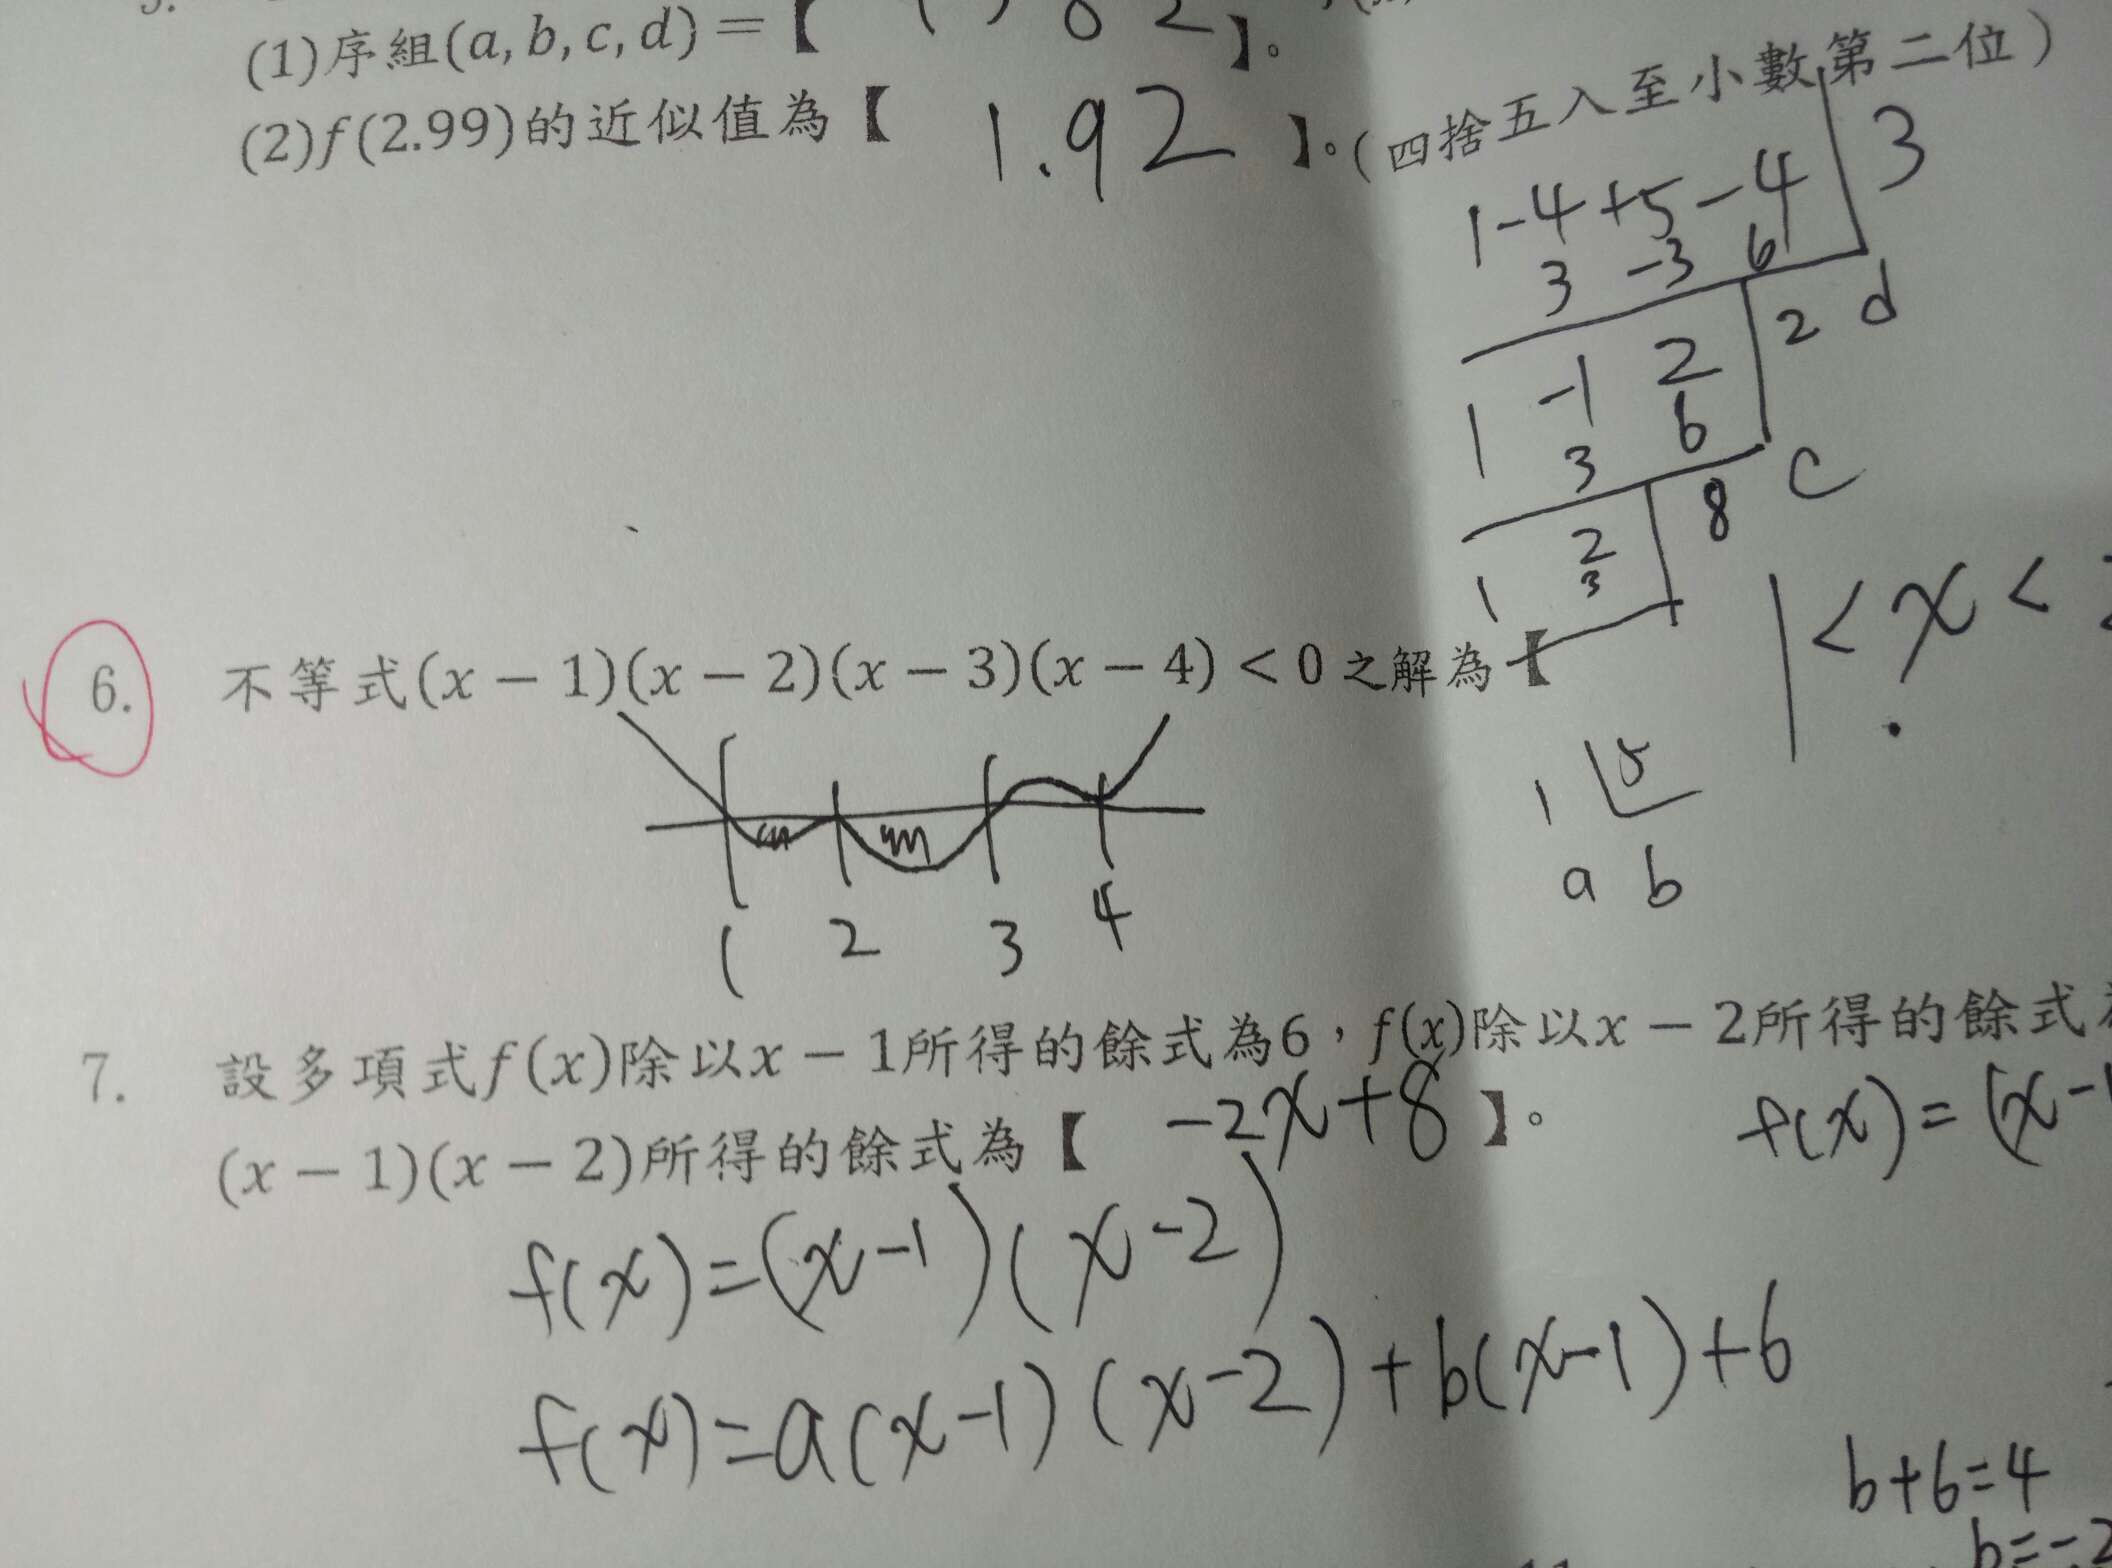 (1)序組(a, b, c, d) = 【 】。
(2)f(2.99)的近似值為【 1.92 】。(四捨五入至小數第二位)
1-4+5-4 3
3 -3 6
1 -1 2 2 d
3 6
1 2 8 c
3
1 5
a b
6. 不等式(x − 1)(x − 2)(x − 3)(x − 4) < 0 之解為【 1<x<
1 2 3 4
7. 設多項式f(x)除以x − 1所得的餘式為6，f(x)除以x − 2所得的餘式
(x − 1)(x − 2)所得的餘式為【 -2x+8 】。
f(x)=(x-1
f(x)=(x-1)(x-2)
f(x)=a(x-1)(x-2)+b(x-1)+6
b+6=4
b=-2